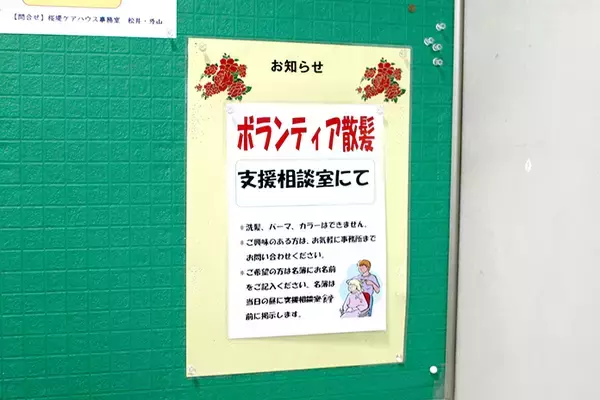 【問合せ】桜堤ケアハウス事務室 松井・片山
お知らせ
ボランティア散髪
支援相談室にて
※洗髪、パーマ、カラーはできません。
※ご興味のある方は、お気軽に事務所まで
お問い合わせください。
※ご希望の方は名簿にお名前
をご記入ください。名簿は
当日の昼に支援相談室
前に掲示します。